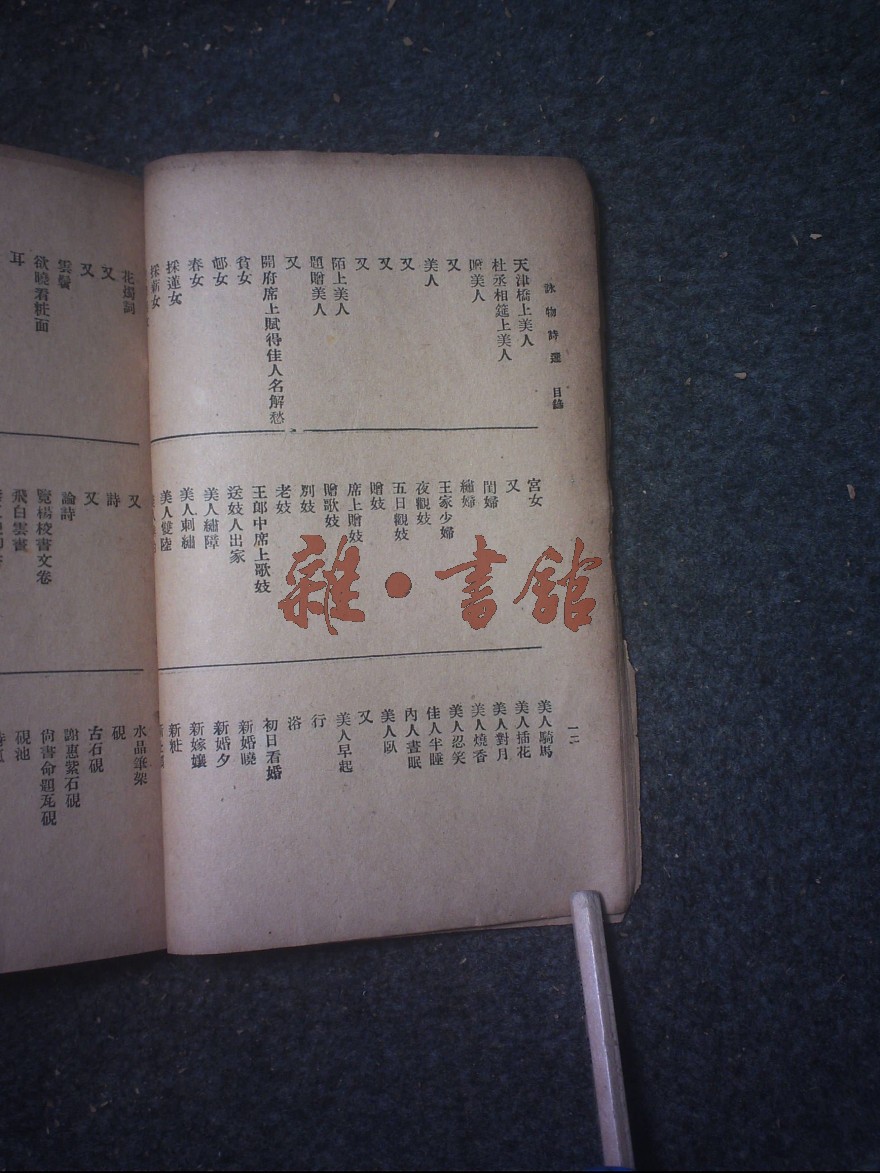 詠物詩選 目錄
一二
天津橋上美人
杜丞相筵上美人
美人
又
美人
又
又
又
陌上美人
題贈美人
又
開府席上賦得佳人名解愁
貧女
邨女
春女
採蓮女
採薪女
宮女
又
閨婦
繡婦
王家少婦
夜觀妓
五日觀妓
贈妓
席上贈妓
贈歌妓
別妓
老妓
王郎中席上歌妓
送妓人出家
美人繡障
美人刺繡
美人雙陸
美人騎馬
美人插花
美人對月
美人燒香
美人忍笑
佳人半睡
內人晝眠
美人臥
又
美人早起
行
浴
初日看婚
新婚曉
新婚夕
新嫁孃
新粧
花燭詞
又
又
雲鬢
欲曉看粧面
耳
又
詩
又
論詩
覽楊校書文卷
飛白雲書
水晶筆架
硯
古石硯
謝惠紫石硯
尚書命題瓦硯
硯池
雜·書館